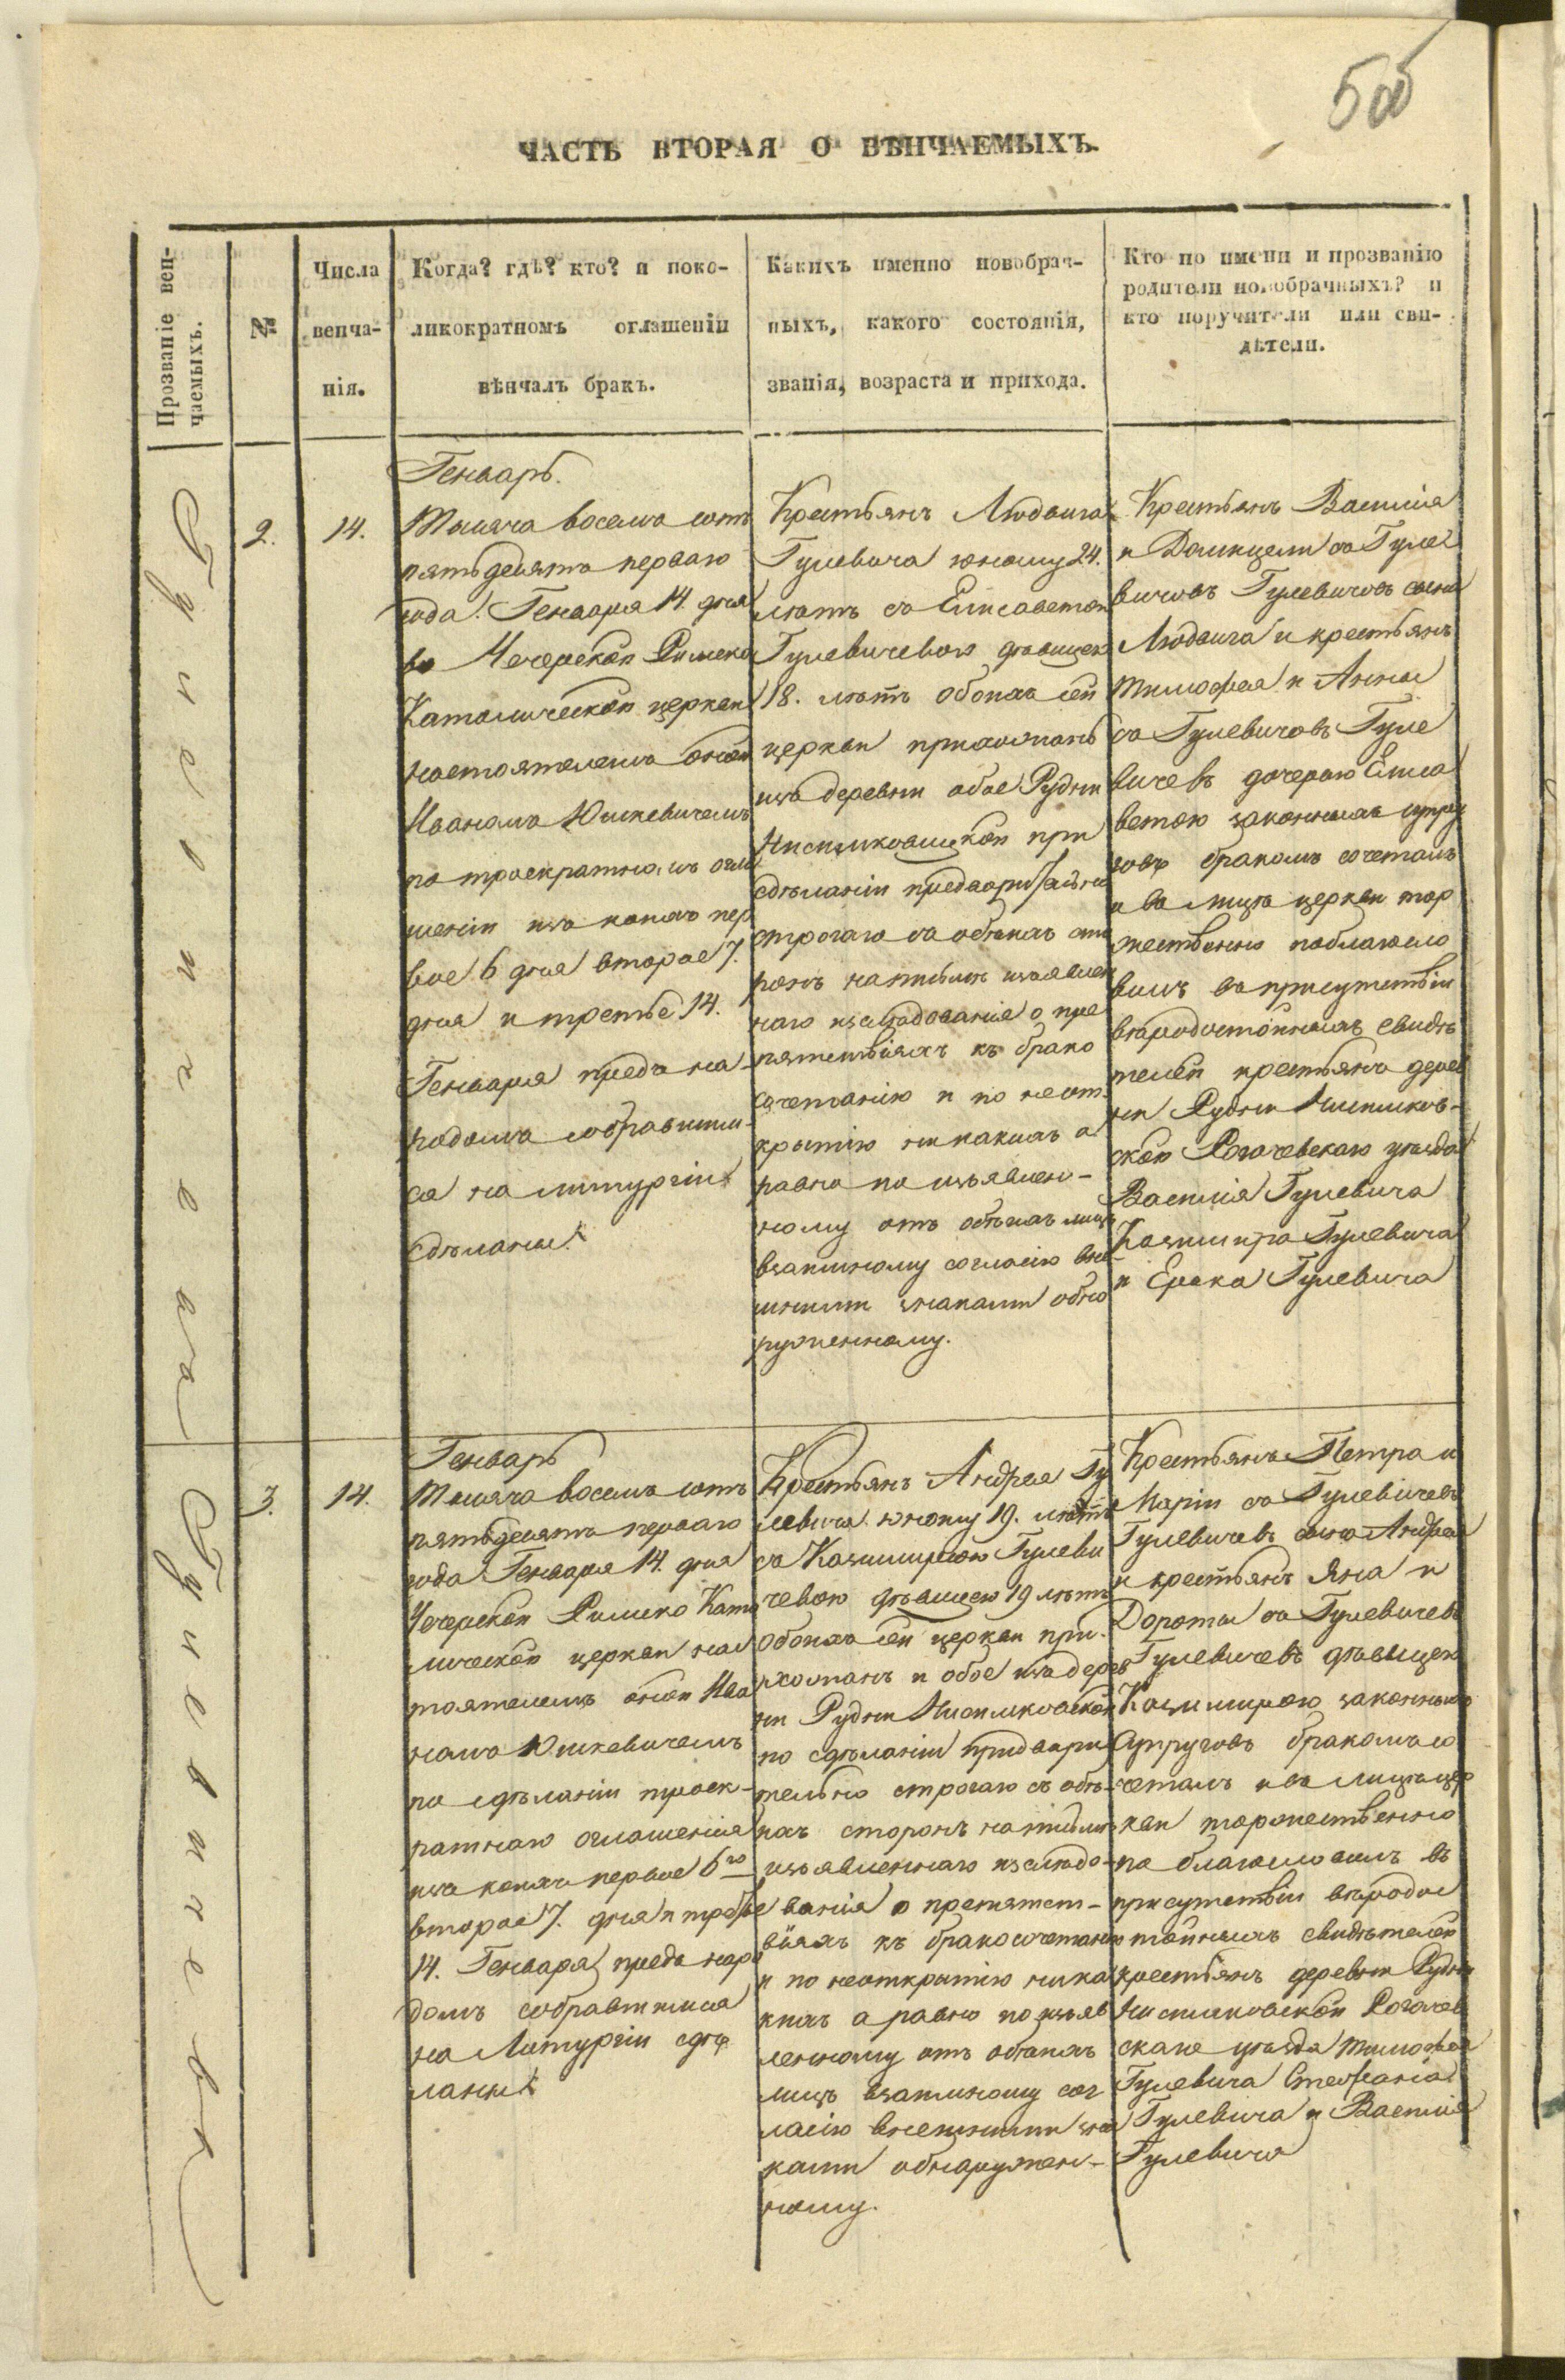 5об
ЧАСТЬ ВТОРАЯ О ВѢНЧАЕМЫХЪ.
Прозваніе вен-
чаемыхъ.
№
Числа
венча-
нія.
Когда? гдѣ? кто? и поко-
ликократномъ оглашеніи
вѣнчалъ бракъ.
Какихъ именно новобрач-
ныхъ, какого состоянія,
званія, возраста и прихода.
Кто по имени и прозванію
родители новобрачныхъ? и
кто поручители или сви-
дѣтели.
2.
14.
Генварь.
Тысяча восемь сотъ
пятьдесятъ перваго
года. Генваря 14. дня
въ Чечерской Римско
Католической церкви
настоятелемъ оной
Иваномъ Юшкевичемъ
по троекратномъ огла
шеніи изъ коихъ пер
вое 6 дня второе 7.
дня и третье 14.
Генваря предъ на-
родомъ собравшим-
ся на литургіи
сдѣланы.
Крестьянъ Людвига
Гулевича юношу 24.
лѣтъ съ Елисаветою
Гулевичевою дѣвицею
18. лѣтъ обоихъ сей
церкви прихожанъ
изъ деревни обое Рудни
Нисимковицкой при
сдѣланіи предварительно
строгаго съ обѣихъ сто
ронъ на письмѣ изъявлен
наго изслѣдованія о пре
пятствіяхъ къ брако
сочетанію и по неот
крытію никакихъ а
равно по изъявлен-
ному отъ обѣихъ лицъ
взаимному согласію внѣ
шними знаками обна
руженному.
Крестьянъ Василія
и Доминцели съ Гуле
вичовъ Гулевичовъ сына
Людвига и крестьянъ
Тимофея и Анны
съ Гулевичовъ Гуле
вичевъ дочерью Елиса
ветою законныхъ супру
говъ бракомъ сочеталъ
и въ лицѣ церкви тор
жественно поблагосло
вилъ въ присутствіи
вѣродостойныхъ свидѣ
телей крестьянъ дерев
ни Рудни Нисимков-
ской Рогачевскаго уѣзда
Василія Гулевича
Казимира Гулевича
и Ерека Гулевича
3.
14.
Генварь
Тысяча восемь сотъ
пятьдесятъ перваго
года Генваря 14. дня
Чечерской Римско Като
лической церкви нас
тоятелемъ оной Ива
номъ Юшкевичемъ
по сдѣланіи троек-
ратнаго оглашенія
изъ коихъ первое 6го
второе 7. дня и третье
14. Генваря предъ наро
домъ собравшимся
на Литургіи сдѣ
ланы
Крестьянъ Андрея Гу
левича юношу 19. лѣтъ
съ Казимирою Гулеви
чевою дѣвицею 19 лѣтъ
обоихъ сей церкви при
хожанъ и обое изъ дерев
ни Рудни Нисимковской
по сдѣланіи предвари
тельно строгаго съ обѣ-
ихъ сторонъ на письмѣ
изъявленнаго изслѣдо-
ванія о препятст-
віяхъ къ бракосочетанію
и по неоткрытію ника
кихъ а равно по изъяв
ленному отъ обѣихъ
лицъ взаимному сог
ласію внешними зна
ками обнаружен-
ному.
Крестьянъ Петра и
Маріи съ Гулевичевъ
Гулевичевъ сына Андрея
и крестьянъ Яна и
Дороты съ Гулевичевъ
Гулевичевъ дѣвицею
Казимирою законныхъ
супруговъ бракомъ со
четалъ и въ лицѣ цер
кви торжественно
по благословилъ въ
присутствіи вѣродос
тойныхъ свидѣтелей
крестьянъ деревни Рудни
Нисимковской Рогачев
скаго уѣзда Тимофея
Гулевича Стефана
Гулевича и Василія
Гулевича